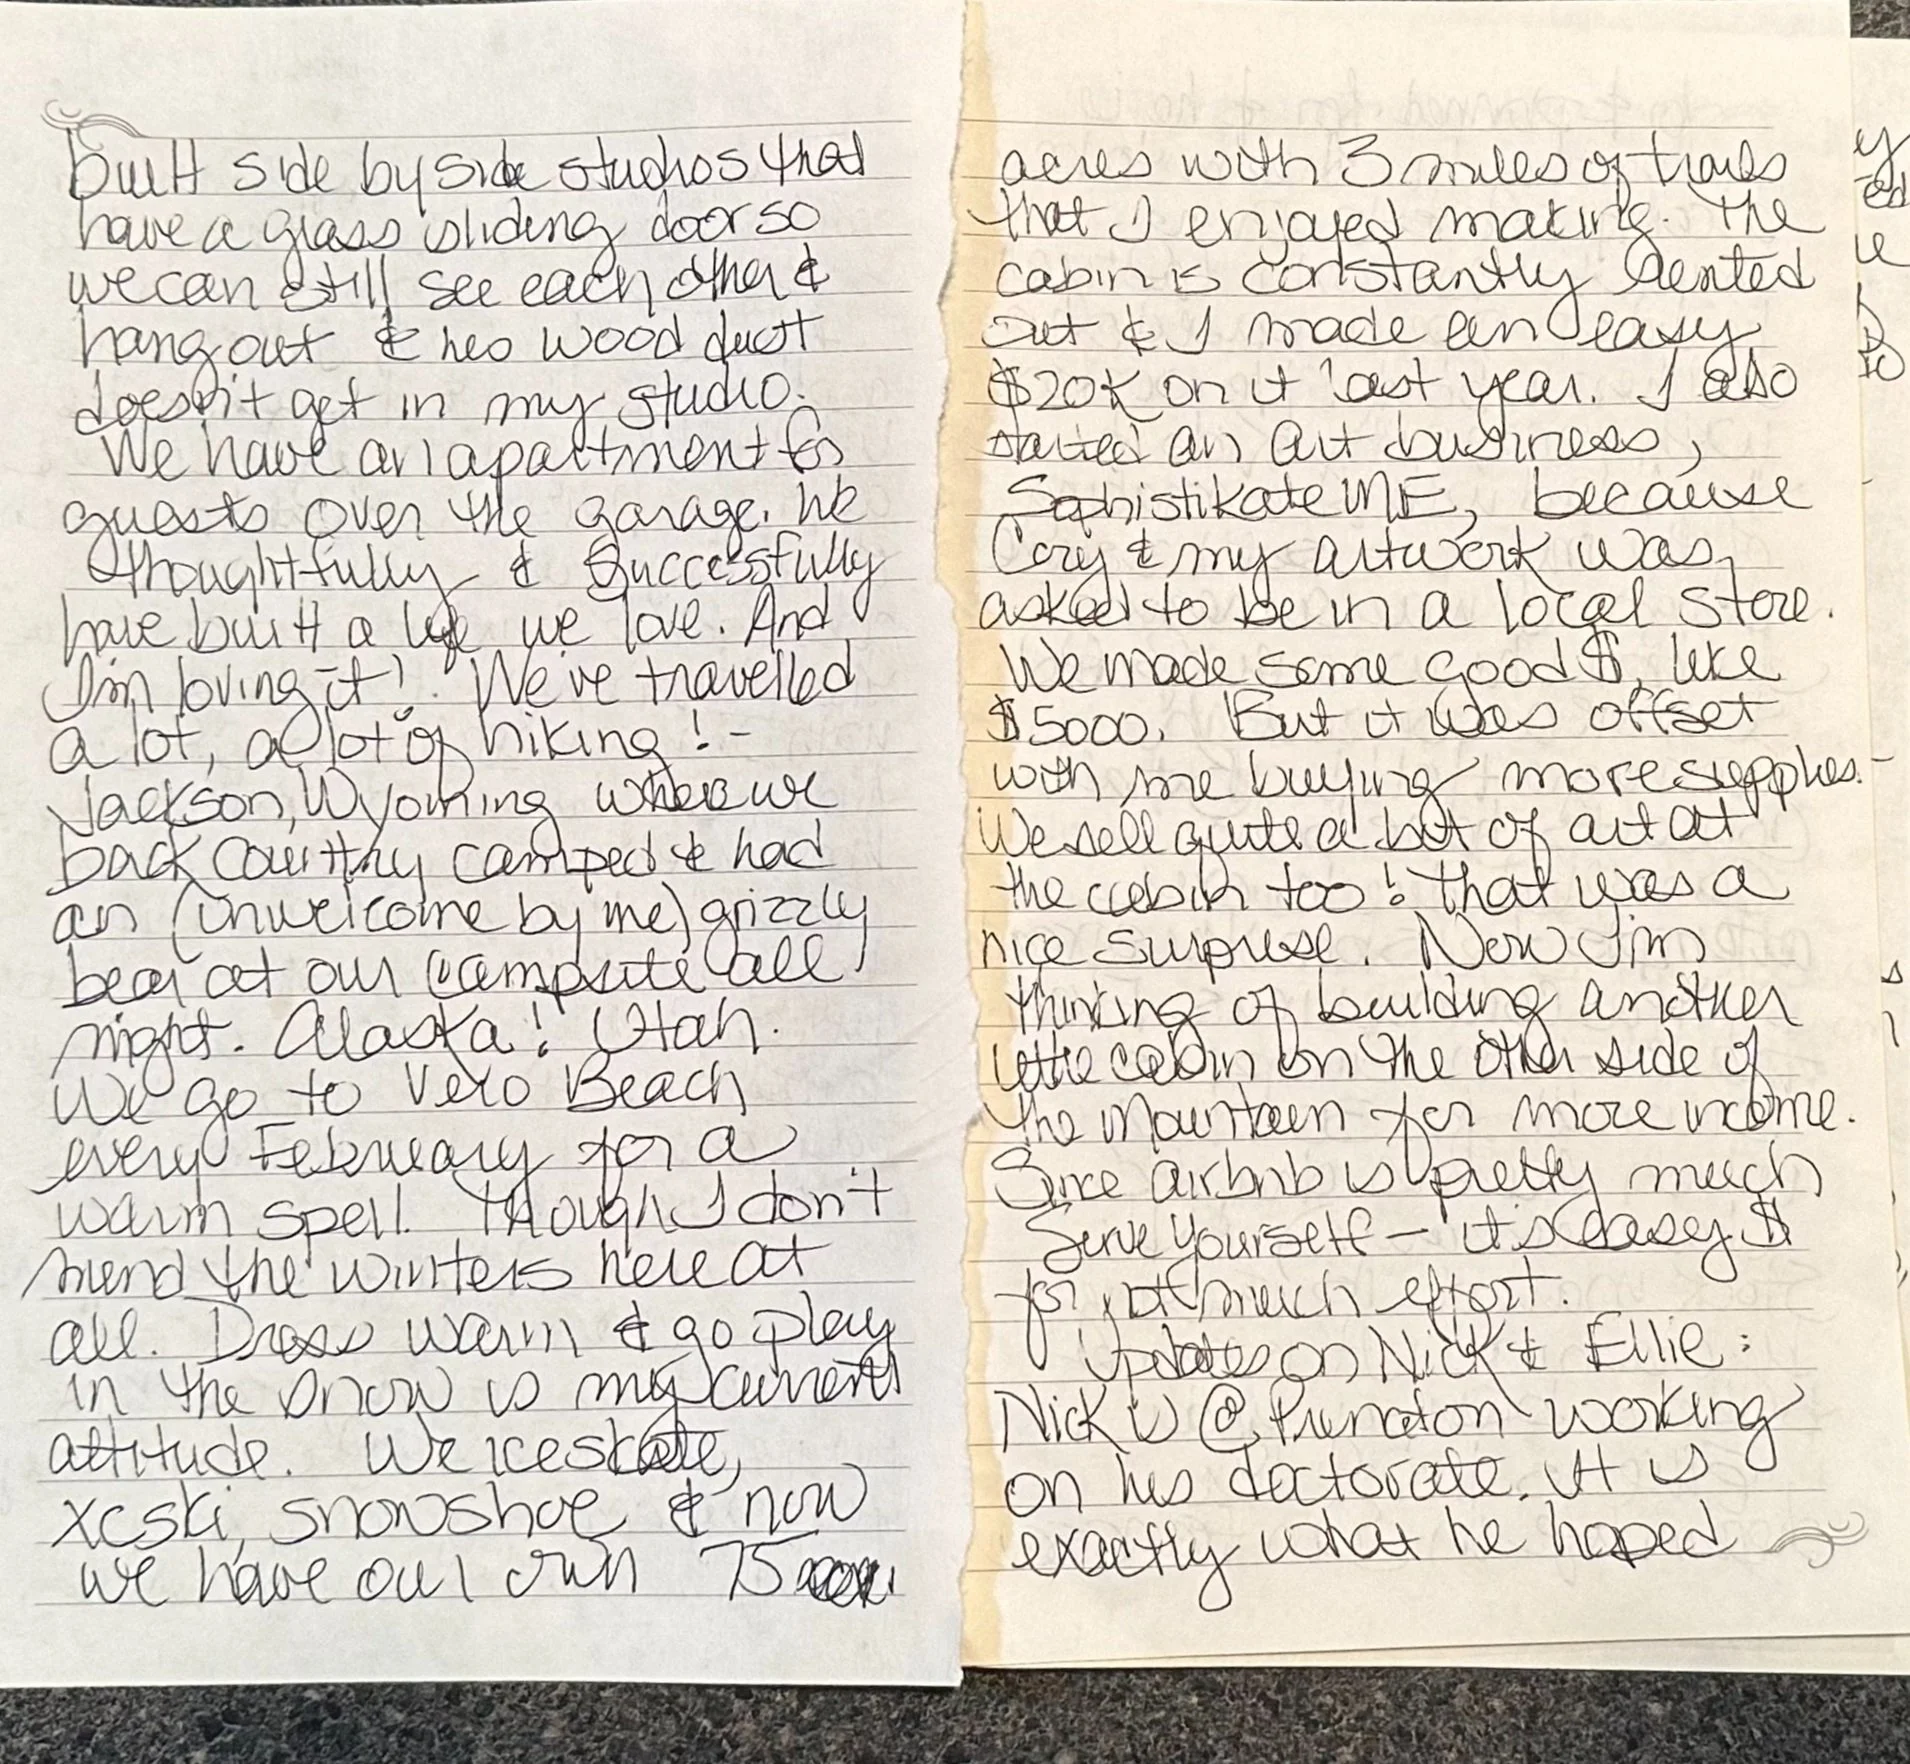 built side by side studios that
have a glass sliding door so
we can still see each other &
hang out & his wood dust
doesn't get in my studio.
We have an apartment for
guests over the garage. We
thoughtfully & successfully
have built a life we love. And
I'm loving it! We've travelled
a lot, a lot of hiking! -
Jackson, Wyoming where we
back country camped & had
an (unwelcome by me) grizzly
bear at our campsite all
night. Alaska! Utah.
We go to Vero Beach
every February for a
warm spell. Though I don't
mind the winters here at
all. Dress warm & go play
in the snow is my current
attitude. We iceskate,
xcski, snowshoe & now
we have our own 75
acres with 3 miles of trails
that I enjoyed making. The
cabin is constantly rented
out & I made an easy
$20K on it last year. I also
started an art business,
SophistikateME, because
Cory & my artwork was
asked to be in a local store.
We made some good $, like
$5000. But it was offset
with me buying more supplies. -
We sell quite a bit of art at
the cabin too! That was a
nice surprise. Now I'm
thinking of building another
little cabin on the other side of
the mountain for more income.
Since airbnb is pretty much
Serve yourself - it's easy $
for not much effort.
Updates on Nick & Ellie:
Nick is @ Princeton working
on his doctorate. It is
exactly what he hoped